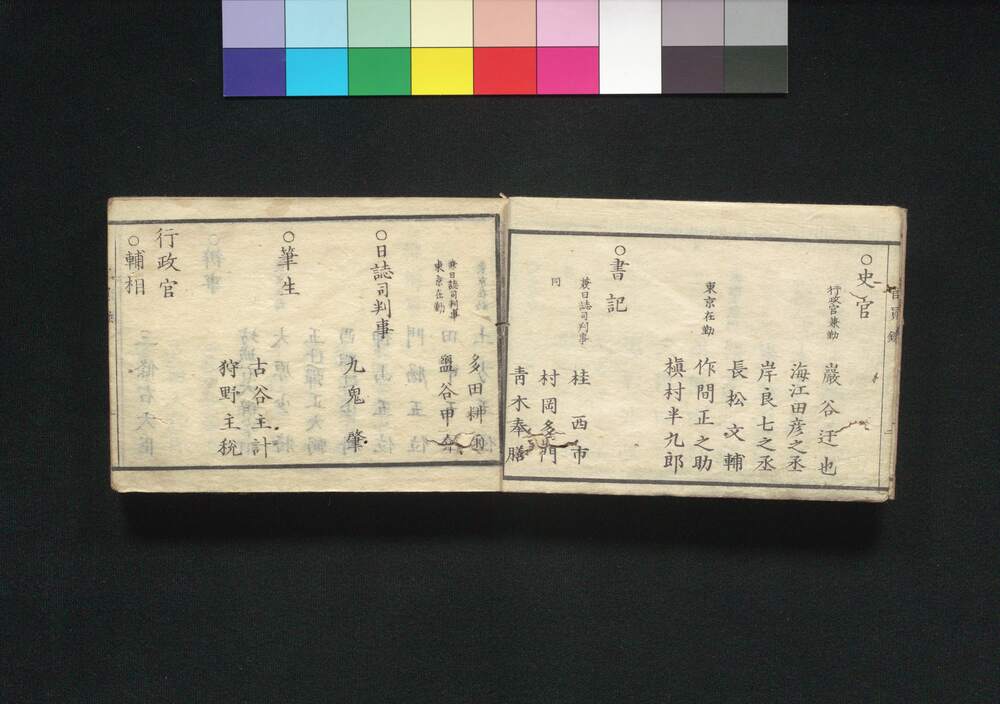 ○史官
行政官兼勤
巌谷迂也
海江田彦之丞
岸良七之丞
長松文輔
東京在勤
作間正之助
槇村半九郎
○書記
兼日誌司判事
桂西市
同
村岡多門
青木奉膳
多田耕
兼日誌司判事
東京在勤
盬谷甲介
○日誌司判事
九鬼肇
○筆生
古谷主計
狩野主税
行政官
○輔相